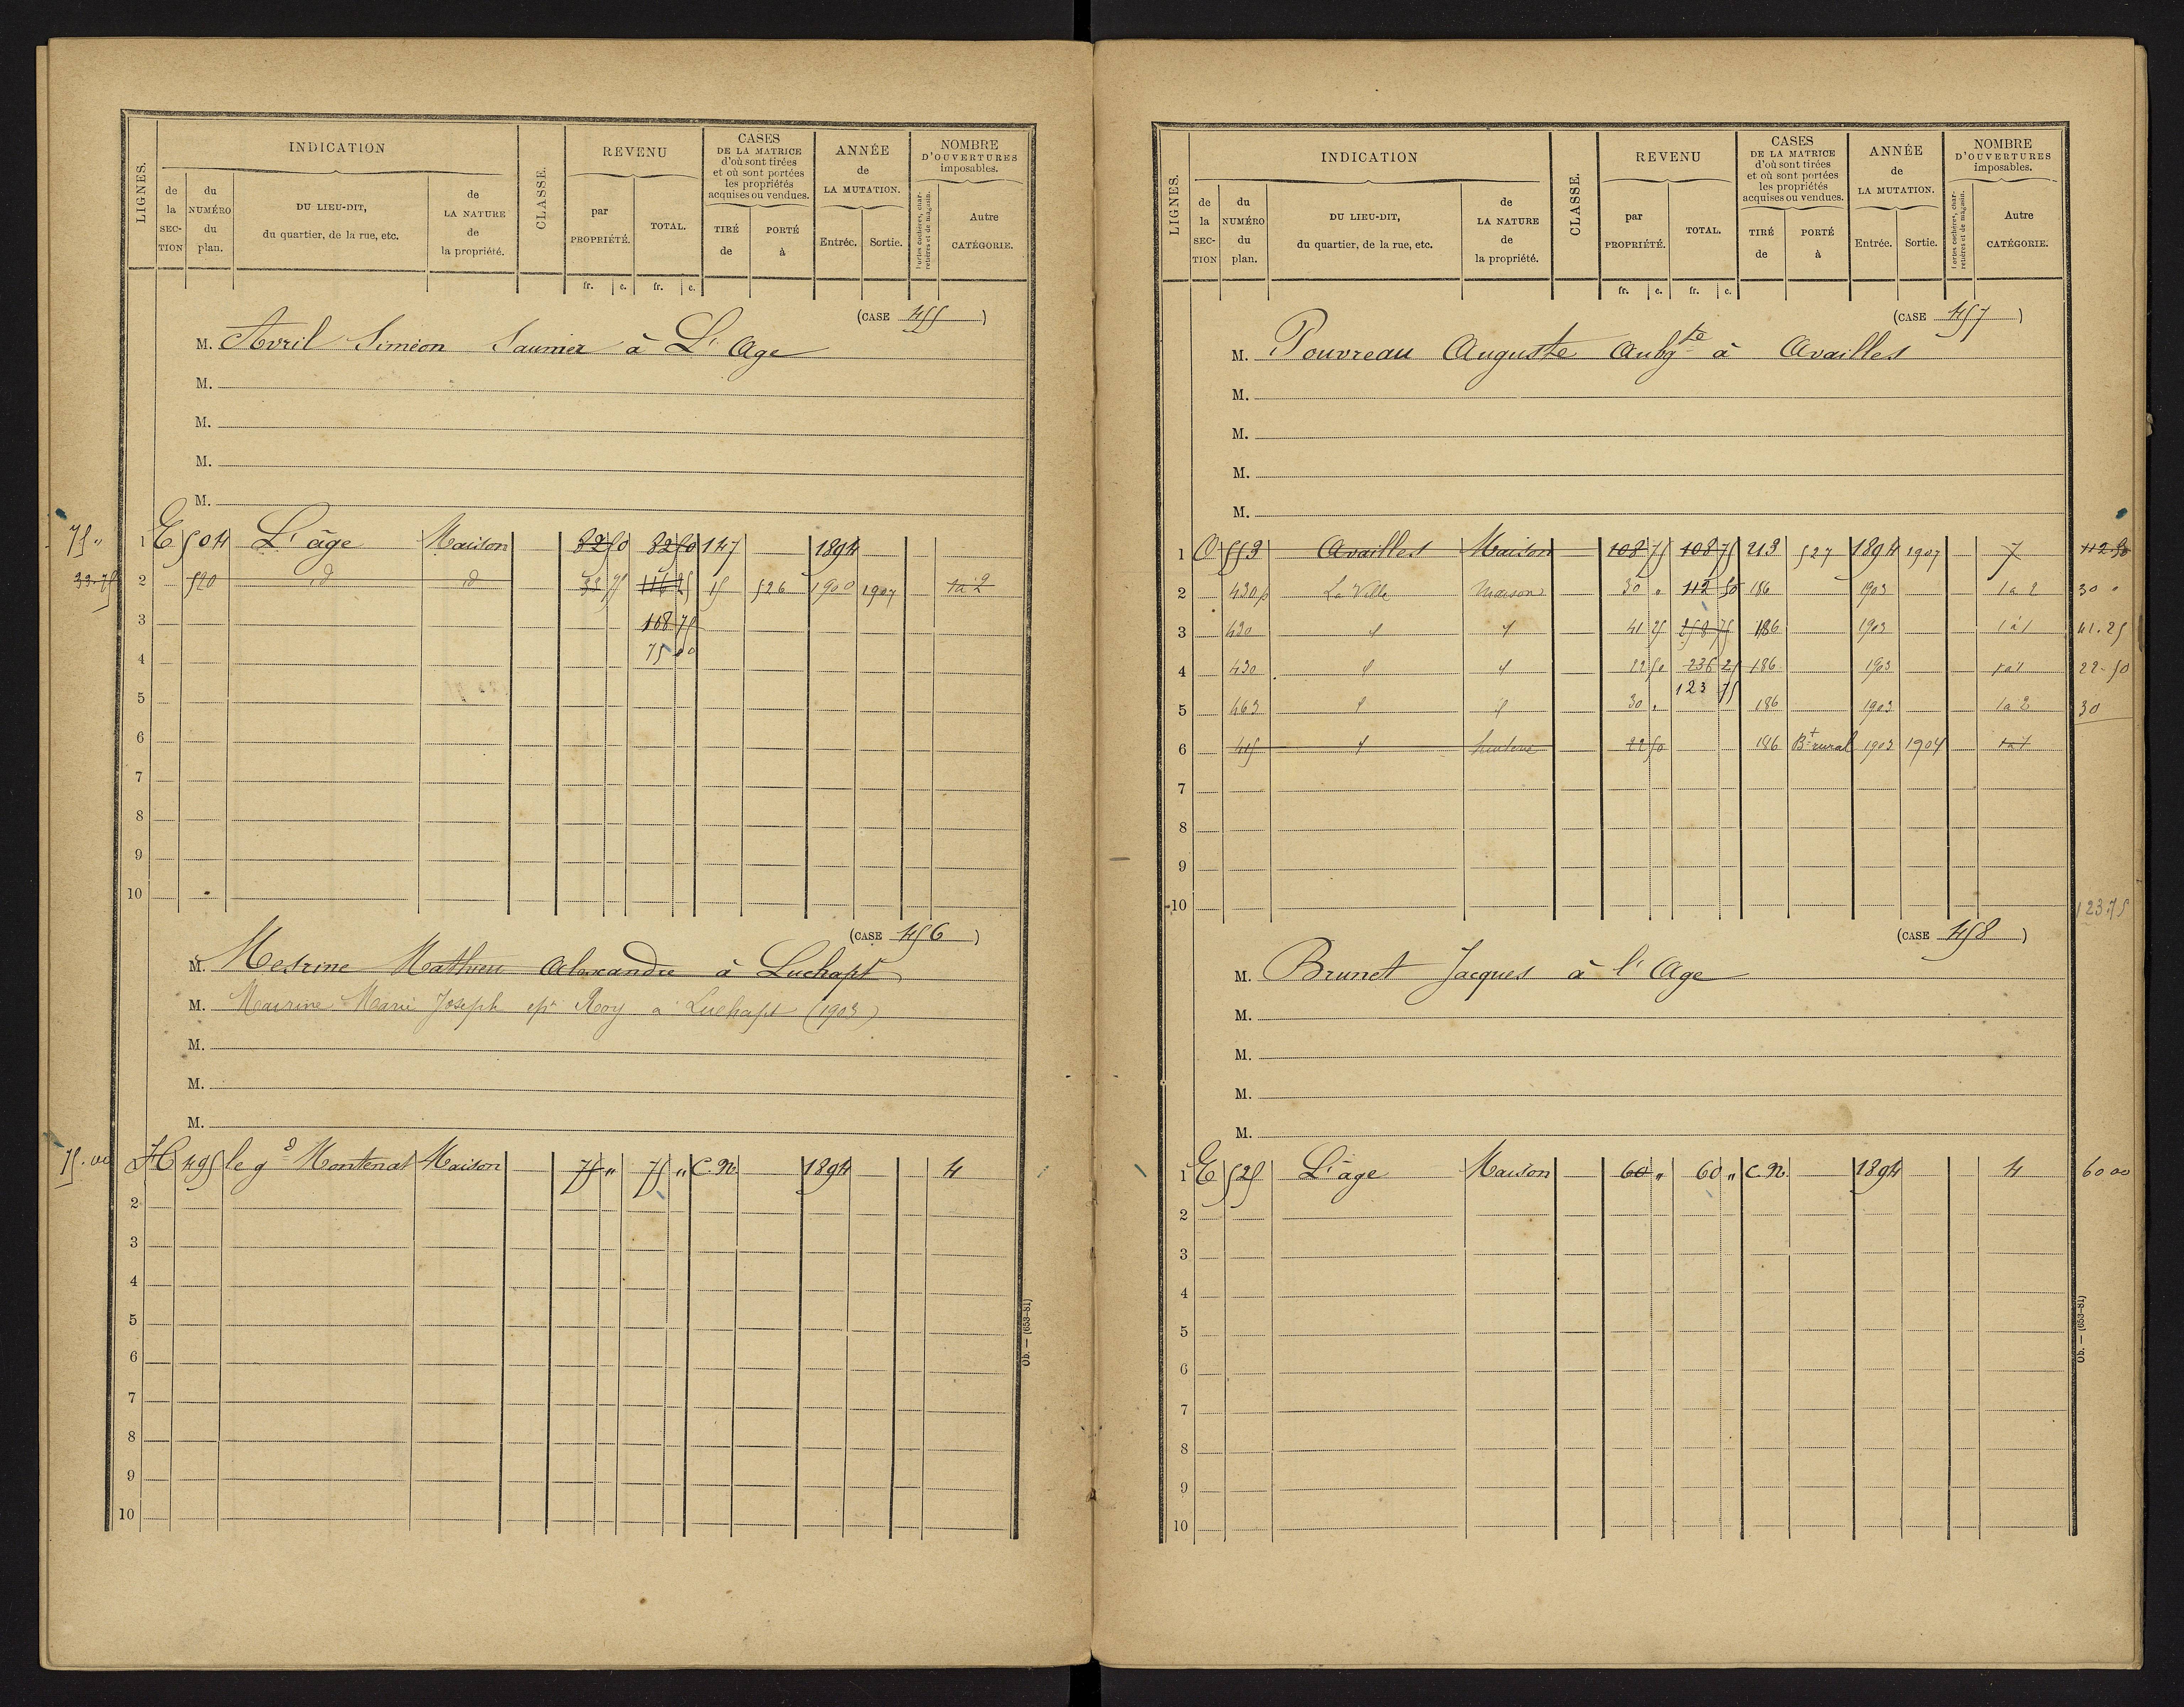 LIGNES.
INDICATION
de la SECTION
du NUMÉRO du plan.
DU LIEU-DIT, du quartier, de la rue, etc.
de LA NATURE de la propriété.
CLASSE.
REVENU
par PROPRIÉTÉ.
TOTAL.
fr. c. fr. c.
CASES DE LA MATRICE d'où sont tirées et où sont portées les propriétés acquises ou vendues.
TIRÉ de
PORTÉ à
ANNÉE de LA MUTATION.
Entrée. Sortie.
NOMBRE D'OUVERTURES imposables.
Portes cochères, charretières et de magasin.
Autre CATÉGORIE.
(CASE 455)
M. Avril Siméon Saunier à L'Age
M.
M.
M.
M.
75 " 1 E 504 L'âge Maison 82 50 82 50 147 1894
33.75 2 520 id id 33 75 116 25 15 526 1900 1907 1 à 2
3 108 75
4 75 00
5
6
7
8
9
10
(CASE 456)
M. Mesrine Mathieu Alexandre à Luchapt
M. Mairine Marie Joseph epe Roy à Luchapt (1903)
M.
M.
M.
75.00 H 495 le gd Montenat Maison 75 " 75 " C.N. 1894 4
2
3
4
5
6
7
8
9
10
Ob. — (653-81)
LIGNES.
INDICATION
de la SECTION
du NUMÉRO du plan.
DU LIEU-DIT, du quartier, de la rue, etc.
de LA NATURE de la propriété.
CLASSE.
REVENU
par PROPRIÉTÉ.
TOTAL.
fr. c. fr. c.
CASES DE LA MATRICE d'où sont tirées et où sont portées les propriétés acquises ou vendues.
TIRÉ de
PORTÉ à
ANNÉE de LA MUTATION.
Entrée. Sortie.
NOMBRE D'OUVERTURES imposables.
Portes cochères, charretières et de magasin.
Autre CATÉGORIE.
(CASE 457)
M. Pouvreau Auguste Aubgte à Availles
M.
M.
M.
M.
1 O 553 Availles Maison 108 75 108 75 213 527 1894 1907 7 112.50
2 430p La Ville Maison 30 " 112 50 186 1903 1 à 2 30 "
3 430 41 25 258 75 186 1903 1 à 1 41.25
4 430 22 50 236 25 186 1903 1 à 1 22-50
123 75
5 463 30 " 186 1903 1 à 2 30
6 415 22 50 186 Bt rural 1903 1904 1 à 1
7
8
9
10 123.75
(CASE 458)
M. Brunet Jacques à l'Age
M.
M.
M.
M.
1 E 525 L'âge Maison 60 " 60 " C.N. 1894 4 60 00
2
3
4
5
6
7
8
9
10
Ob. — (653-81)